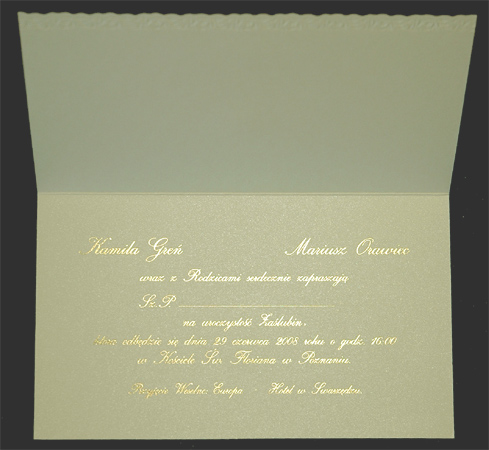 Kamila Greń Mariusz Orawiec
wraz z Rodzicami serdecznie zapraszają
Sz.P.
na uroczystość Zaślubin,
która odbędzie się dnia 29 czerwca 2008 roku o godz. 16:00
w Kościele Św. Floriana w Poznaniu.
Przyjęcie Weselne: Europa - Hotel w Swarzędzu.